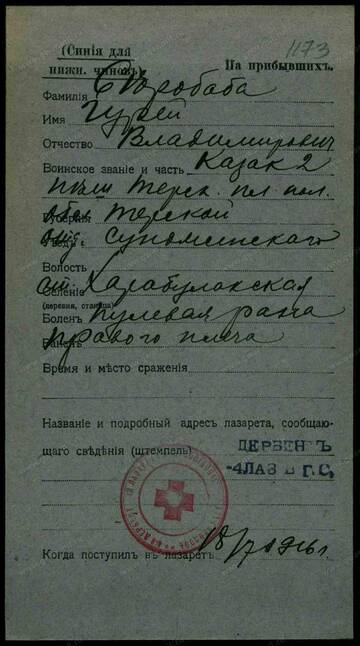 1173
(Синія для
нижн. чиновъ)
На прибывшихъ.
Фамилія Скоробаба
Имя Гурей
Отчество Владимирович
Воинское званіе и часть Казак 2
Терск. пл. пол.
Губернія обл. Терской
Уѣздъ Сунженского
Волость
Селеніе ст. Карабулакская
(деревня, станица)
Боленъ пулевая рана
Раненъ правого плеча
Время и мѣсто сраженія
Названіе и подробный адресъ лазарета, сообщаю-
щаго свѣдѣнія (штемпель)
ДЕРБЕНТЪ
-4 ЛАЗ В Г.С.
Когда поступилъ въ лазаретъ